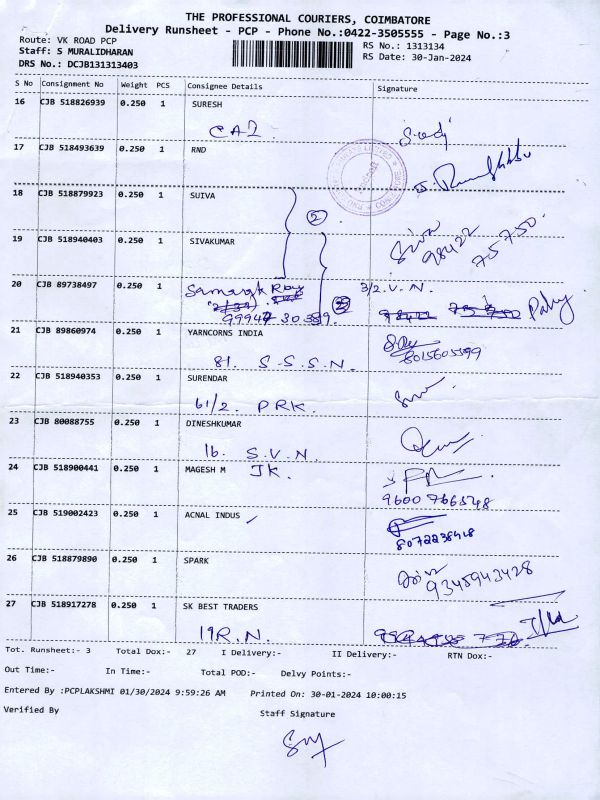 THE PROFESSIONAL COURIERS, COIMBATORE
Delivery Runsheet - PCP - Phone No.:0422-3505555 - Page No.:3
Route: VK ROAD PCP
Staff: S MURALIDHARAN
DRS No.: DCJB131313403
RS No.: 1313134
RS Date: 30-Jan-2024
S No Consignment No Weight PCS Consignee Details Signature
16 CJB 518826939 0.250 1 SURESH
17 CJB 518493639 0.250 1 RND
18 CJB 518879923 0.250 1 SUIVA
2
19 CJB 518940403 0.250 1 SIVAKUMAR Siva 98422 75750
20 CJB 89738497 0.250 1 3/2.V.N.
21 CJB 89860974 0.250 1 YARNCORNS INDIA
81. S.S.S.N. 8015605599
22 CJB 518940353 0.250 1 SURENDAR
61/2. PRK.
23 CJB 80088755 0.250 1 DINESHKUMAR
16. S.V.N.
24 CJB 518900441 0.250 1 MAGESH M JK.
9600766548
25 CJB 519002423 0.250 1 ACNAL INDUS
26 CJB 518879890 0.250 1 SPARK
9345943428
27 CJB 518917278 0.250 1 SK BEST TRADERS
19R.N.
Tot. Runsheet:- 3 Total Dox:- 27 I Delivery:- II Delivery:- RTN Dox:-
Out Time:- In Time:- Total POD:- Delvy Points:-
Entered By :PCPLAKSHMI 01/30/2024 9:59:26 AM Printed On: 30-01-2024 10:00:15
Verified By Staff Signature